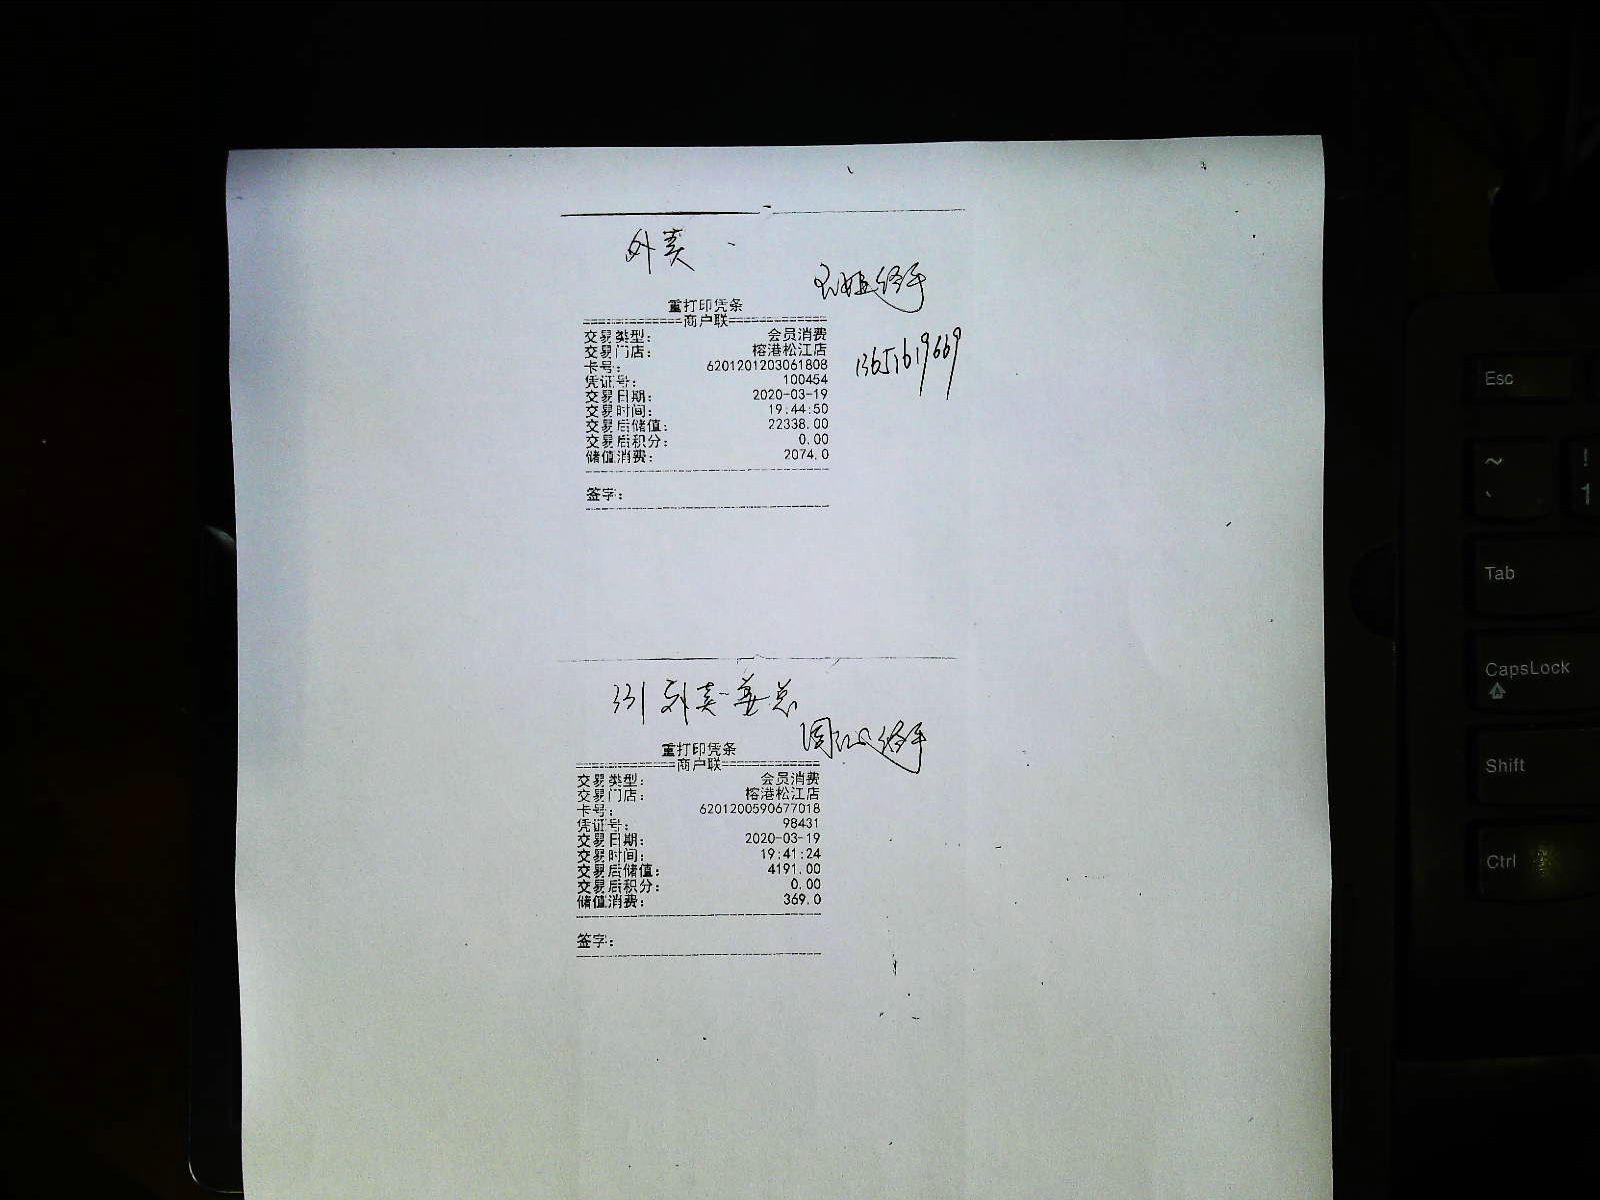 外卖
经手
重打印凭条
=============商户联=============
交易类型： 会员消费
交易门店： 榕港松江店
卡号： 6201201203061808
凭证号： 100454
交易日期： 2020-03-19
交易时间： 19:44:50
交易后储值： 22338.00
交易后积分： 0.00
储值消费： 2074.0
签字：
13651619669
331 外卖 姜总
周 经手
重打印凭条
=============商户联=============
交易类型： 会员消费
交易门店： 榕港松江店
卡号： 6201200590677018
凭证号： 98431
交易日期： 2020-03-19
交易时间： 19:41:24
交易后储值： 4191.00
交易后积分： 0.00
储值消费： 369.0
签字：
Esc
~ !
` 1
Tab
CapsLock
Shift
Ctrl